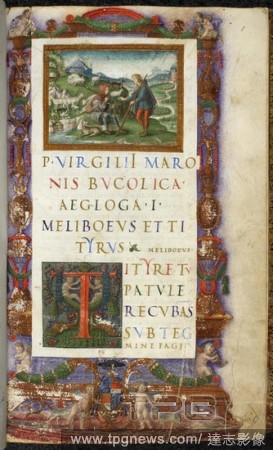 P·VIRGILII MARO
NIS BVCOLICA·
AEGLOGA·I·
MELIBOEVS ET TI
TYRVS MELIBOEVS
TITYRE TV
PATVLE
RECVBAS
SVB TEG
MINE FAGI
www.tpgnews.com/ 達志影像